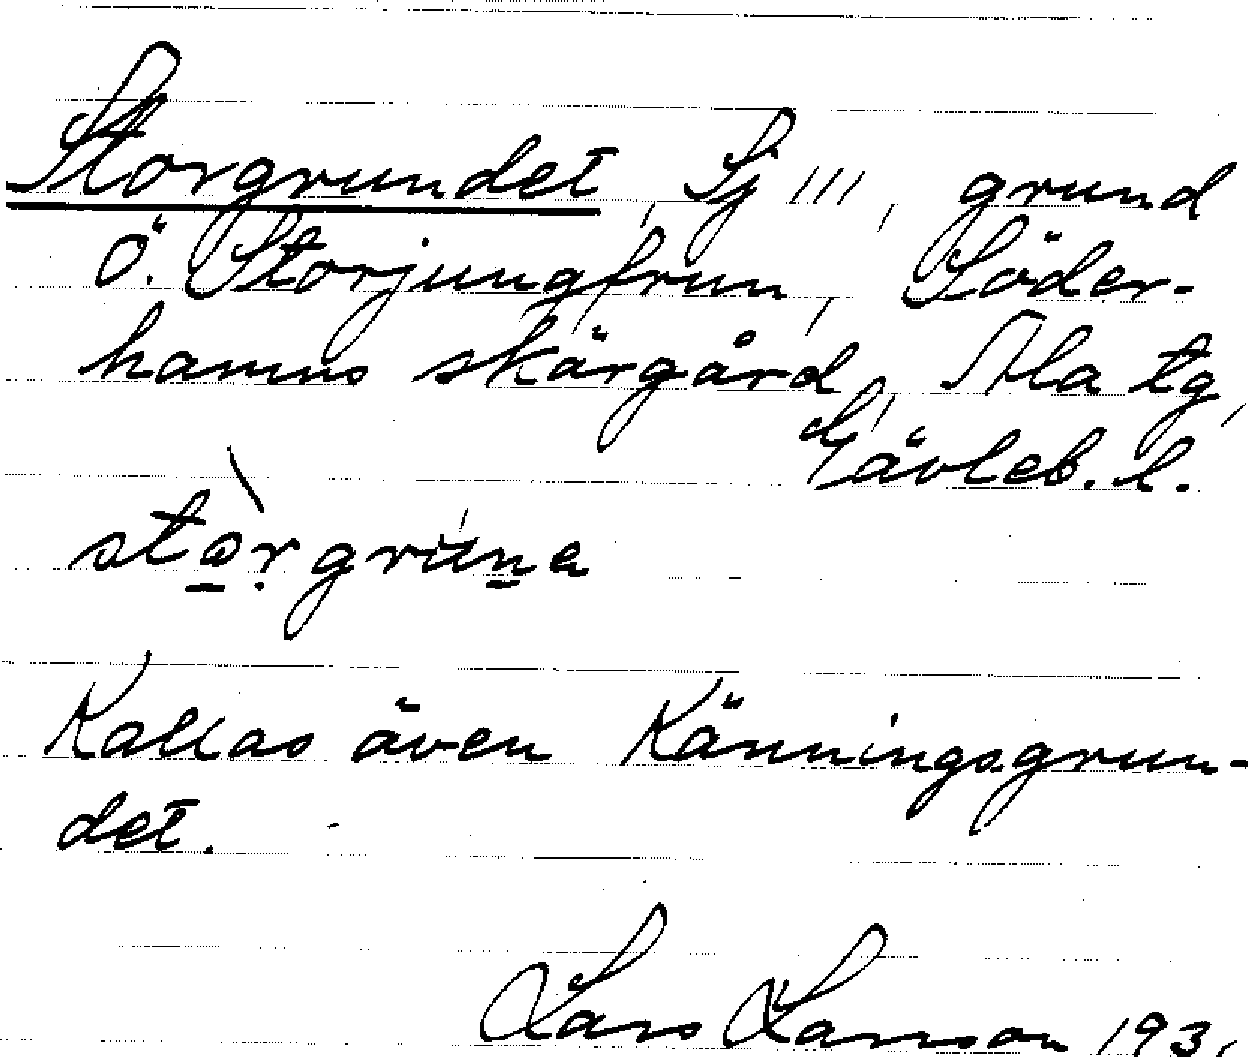 Storgrundet, Sj III, grund
Ö. Storjungfrun, Söder-
hamns skärgård, Ala tg,
Gävleb. l.
stòr̤gru̍n̲a
Kallas även Känningsgrun-
det.
Lars Larsson 193